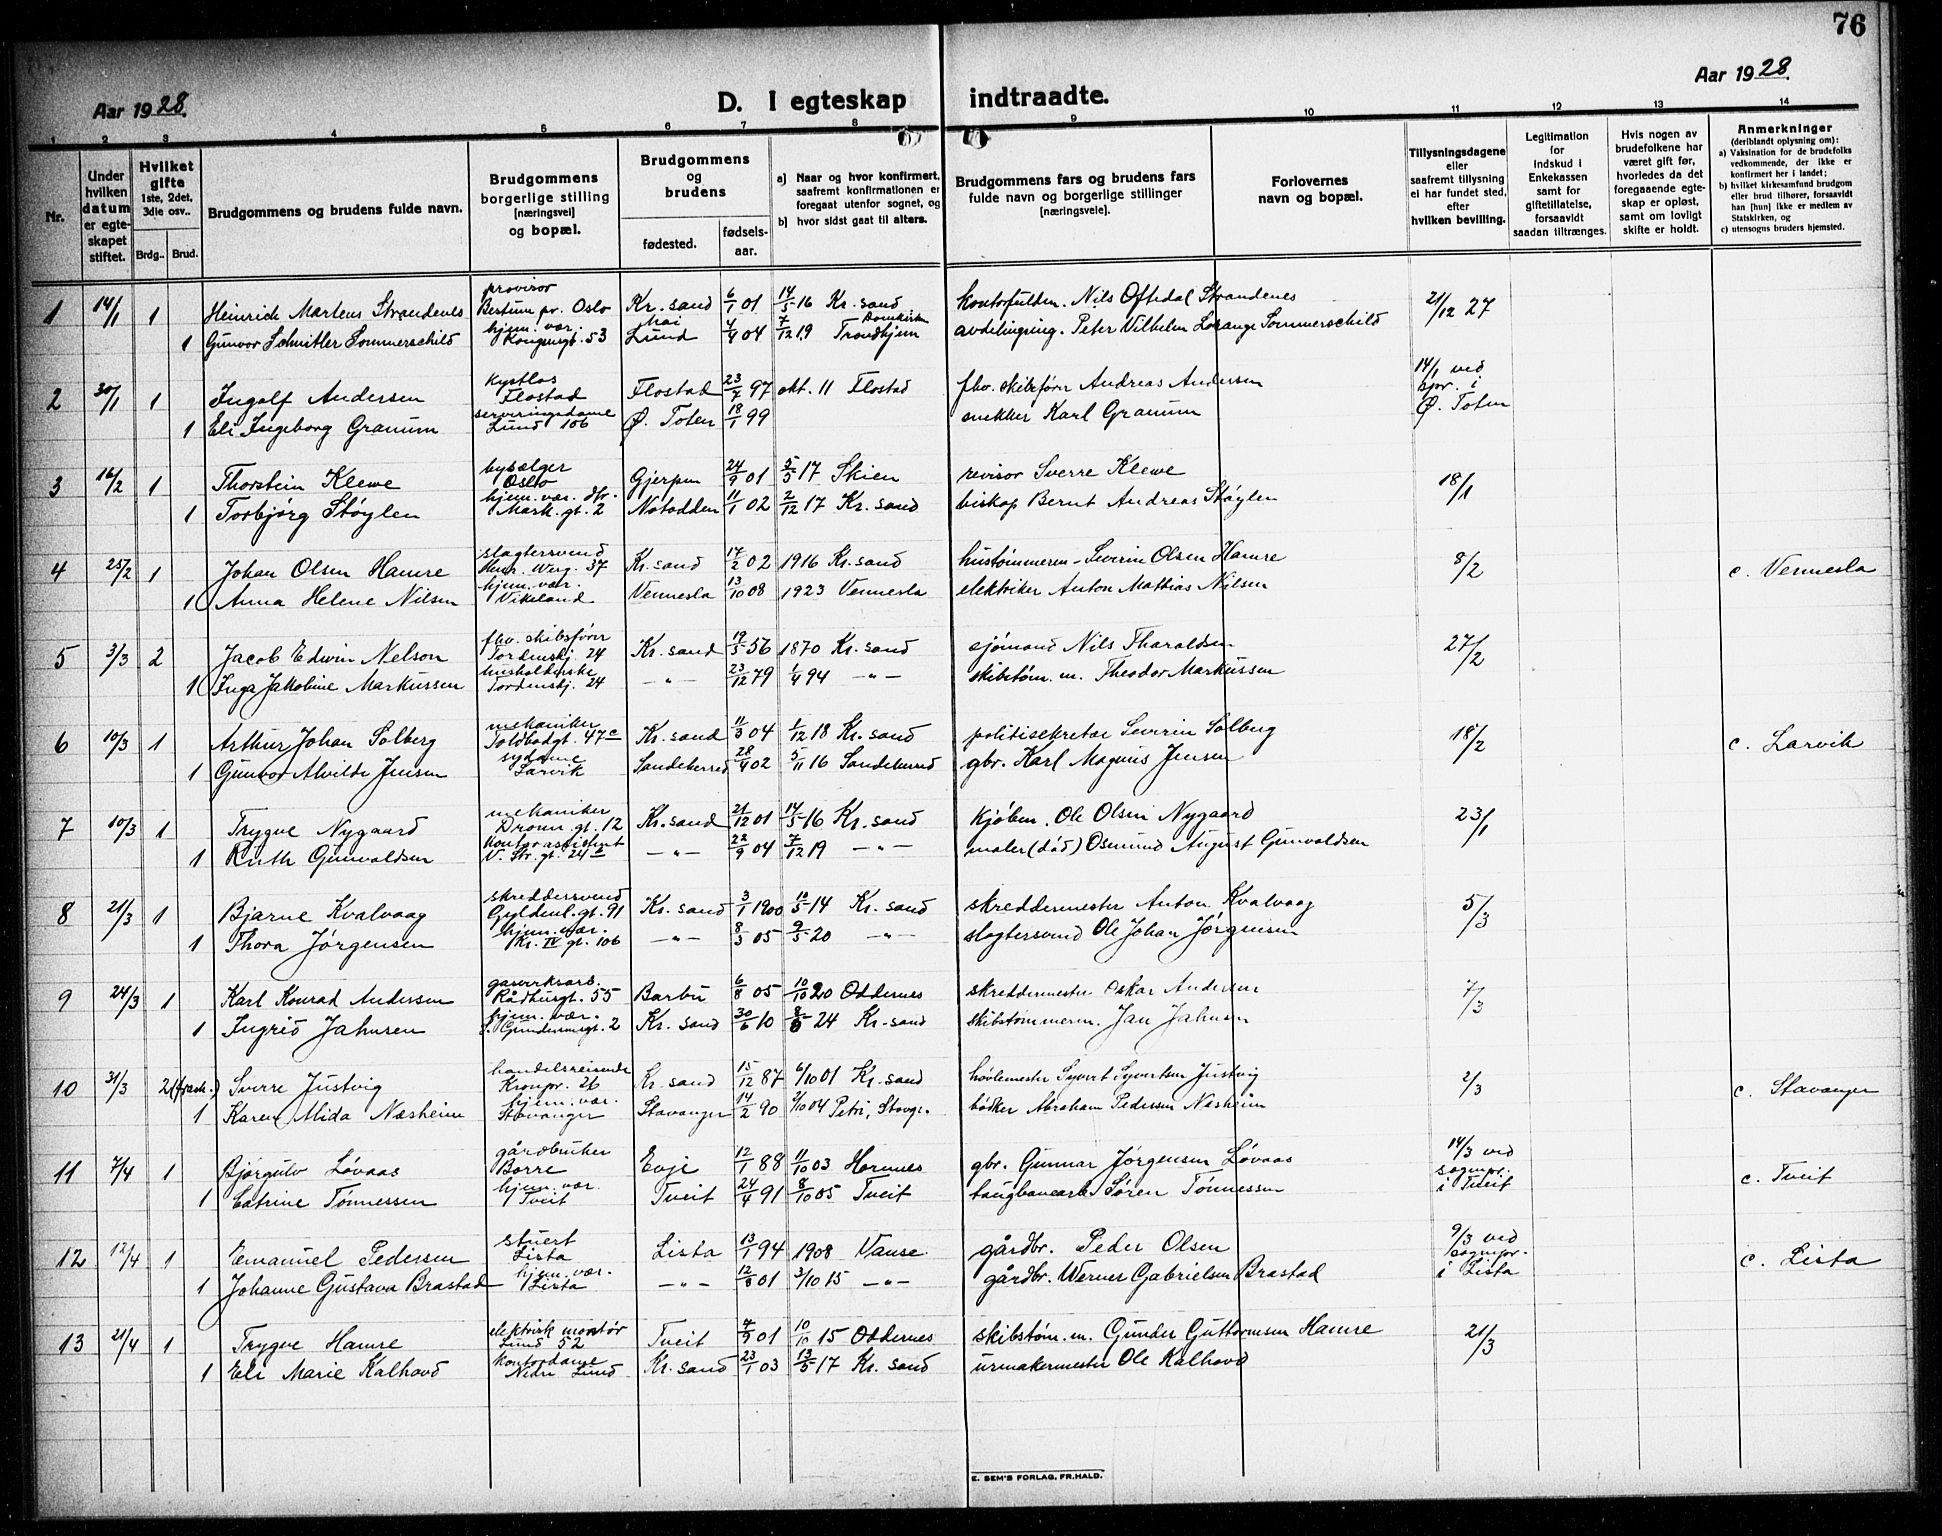 76
Aar 1928.
D. I egteskap indtraadte.
Aar 1928.
1 2 3 4 5 6 7 8 9 10 11 12 13 14
Nr.
Under hvilken datum er egteskapet stiftet.
Hvilket gifte 1ste, 2det, 3die osv..
Brdg.. Brud.
Brudgommens og brudens fulde navn.
Brudgommens borgerlige stilling [næringsvei] og bopæl.
Brudgommens og brudens
fødested.
fødselsaar.
a) Naar og hvor konfirmert, saafremt konfirmationen er foregaat utenfor sognet, og
b) hvor sidst gaat til alters.
Brudgommens fars og brudens fars fulde navn og borgerlige stillinger [næringsveie].
Forlovernes navn og bopæl.
Tillysningsdagene eller saafremt tillysning ei har fundet sted, efter hvilken bevilling.
Legitimation for indskud i Enkekassen samt for giftetillatelse, forsaavidt saadan tiltrænges.
Hvis nogen av brudefolkene har været gift før, hvorledes da det foregaaende egteskap er opløst, samt om lovligt skifte er holdt.
Anmerkninger (deriblandt oplysning om):
a) Vaksination for de brudefolks vedkommende, der ikke er konfirmert her i landet;
b) hvilket kirkesamfund brudgom eller brud tilhører, forsaavidt han [hun] ikke er medlem av Statskirken, og
c) utensogns bruders hjemsted.
1 14/1 1 Heinrich Martens Strandenes provisor Bestum pr. Oslo Kr. sand 6/1 01 14/5 16 Kr. sand kontorfuldm. Nils Oftedal Strandenes 21/12 27
1 Gunvor Schnitler Sommerschild hjem. vær. Kongensgt. 53 Lund 04 7/12 19 Domkirken Trondhjem avdelingsing. Peter Vilhelm Lorange Sommerschild
2 30/1 1 Ingolf Andersen kystlos Flostad Flostad 23/7 97 okt. 11 Flostad fhv. skibsfører Andreas Andersen 14/1 ved spr. i Ø. Toten
1 Eli Ingeborg Granum serveringsdame Lund 106 Ø. Toten 18/1 99 snekker Karl Granum
3 16/2 1 Thorstein Klewe bysælger Oslo Gjerpen 24/9 01 5/5 17 Skien revisor Sverre Klewe 18/1
1 Torbjørg Støylen hjem. vær. Mark. gt. 2 Notodden 11/1 02 2/12 17 Kr. sand biskop Bernt Andreas Støylen
4 25/2 1 Johan Olsen Hamre slagtersvend Henr. Werg. 37 Kr. sand 17/2 02 1916 Kr. sand hustømmerm. Severin Olsen Hamre 8/2 c. Vennesla
1 Anna Helene Nilsen hjem. vær. Vikeland Vennesla 13/10 08 1923 Vennesla elektriker Anton Mathias Nilsen
5 3/3 2 Jacob Edwin Nelson fhv. skibsfører Tordenskj. 24 Kr. sand 19/5 56 1870 Kr. sand sjømand Nils Tharaldsen 27/2
1 Inga Jakobine Markussen husholderske Tordenskj. 24 —„— 23/12 79 1/4 94 —„— skibstøm. m. Theodor Markussen
6 10/3 1 Arthur Johan Solberg mekaniker Toldbodgt. 47c Kr. sand 11/3 04 1/12 18 Kr. sand politisekretær Severin Solberg 18/2 c. Larvik
1 Gunvor Alvilde Jensen sydame Larvik Sandeherred 28/4 02 5/11 16 Sandeherred gbr. Karl Magnus Jensen
7 10/3 1 Trygve Nygaard mekaniker Dronn. gt. 12 Kr. sand 21/12 01 14/5 16 Kr. sand kjøbm. Ole Olsen Nygaard 23/1
1 Ruth Gunvaldsen kontorassistent V. Str. gt. 24 —„— 22/9 04 7/12 19 —„— maler (død) Osmund August Gunvaldsen
8 21/3 1 Bjarne Kvalvaag skreddersvend Gyldenl. gt. 91 Kr. sand 3/1 1900 10/5 14 Kr. sand skreddermester Anton Kvalvaag 5/3
1 Thora Jørgensen hjem. vær. Kr. IV gt. 106 —„— 8/3 05 9/5 20 —„— slagtersvend Ole Johan Jørgensen
9 24/3 1 Karl Konrad Andersen gasverksarb. Rådhusgt. 55 Barbu 6/8 05 10/10 20 Oddernes skreddermester Oskar Andersen 7/3
1 Ingrid Jahnsen hjem. vær. Gundersensgt. 2 Kr. sand 30/6 10 24 Kr. sand skibstømmerm. Jan Jahnsen
10 31/3 2 Sverre Justvig handelsreisende Kronpr. 26 Kr. sand 15/12 87 6/10 01 Kr. sand høvlemester Syvert Syvertsen Justvig 2/3 c. Stavanger
1 Karen Alida Næsheim hjem. vær. Stavanger Stavanger 14/2 90 2/10 04 Petri, Stavgr. bødker Abraham Pedersen Næsheim
11 7/4 1 Bjørgulv Løvaas gårdbruker Borre Evje 12/1 88 11/10 03 Hornnes gbr. Gunnar Jørgensen Løvaas 14/3 ved sognepr. i Tveit c. Tveit
1 Catrine Tønnessen hjem. vær. Tveit Tveit 24/4 91 8/10 05 Tveit taugbanearb. Søren Tønnessen
12 12/4 1 Emanuel Pedersen stuert Lista Lista 13/1 94 1908 Vanse gårdbr. Peder Olsen 9/3 ved sognpr. i Lista c. Lista
1 Johanne Gustava Brastad hjem. vær. Lista —„— 12/8 01 3/10 15 —„— gårdbr. Werner Gabrielsen Brastad
13 21/4 1 Trygve Hamre elektrisk montør Lund 52 Tveit 4/9 01 10/10 15 Oddernes skibstøm. m. Gunder Guttormsen Hamre 21/3
1 Eli Marie Kalhovd kontordame Nedre Lund Kr. sand 23/1 03 13/5 17 Kr. sand urmakermester Ole Kalhovd
E. SEM'S FORLAG, FR.HALD.